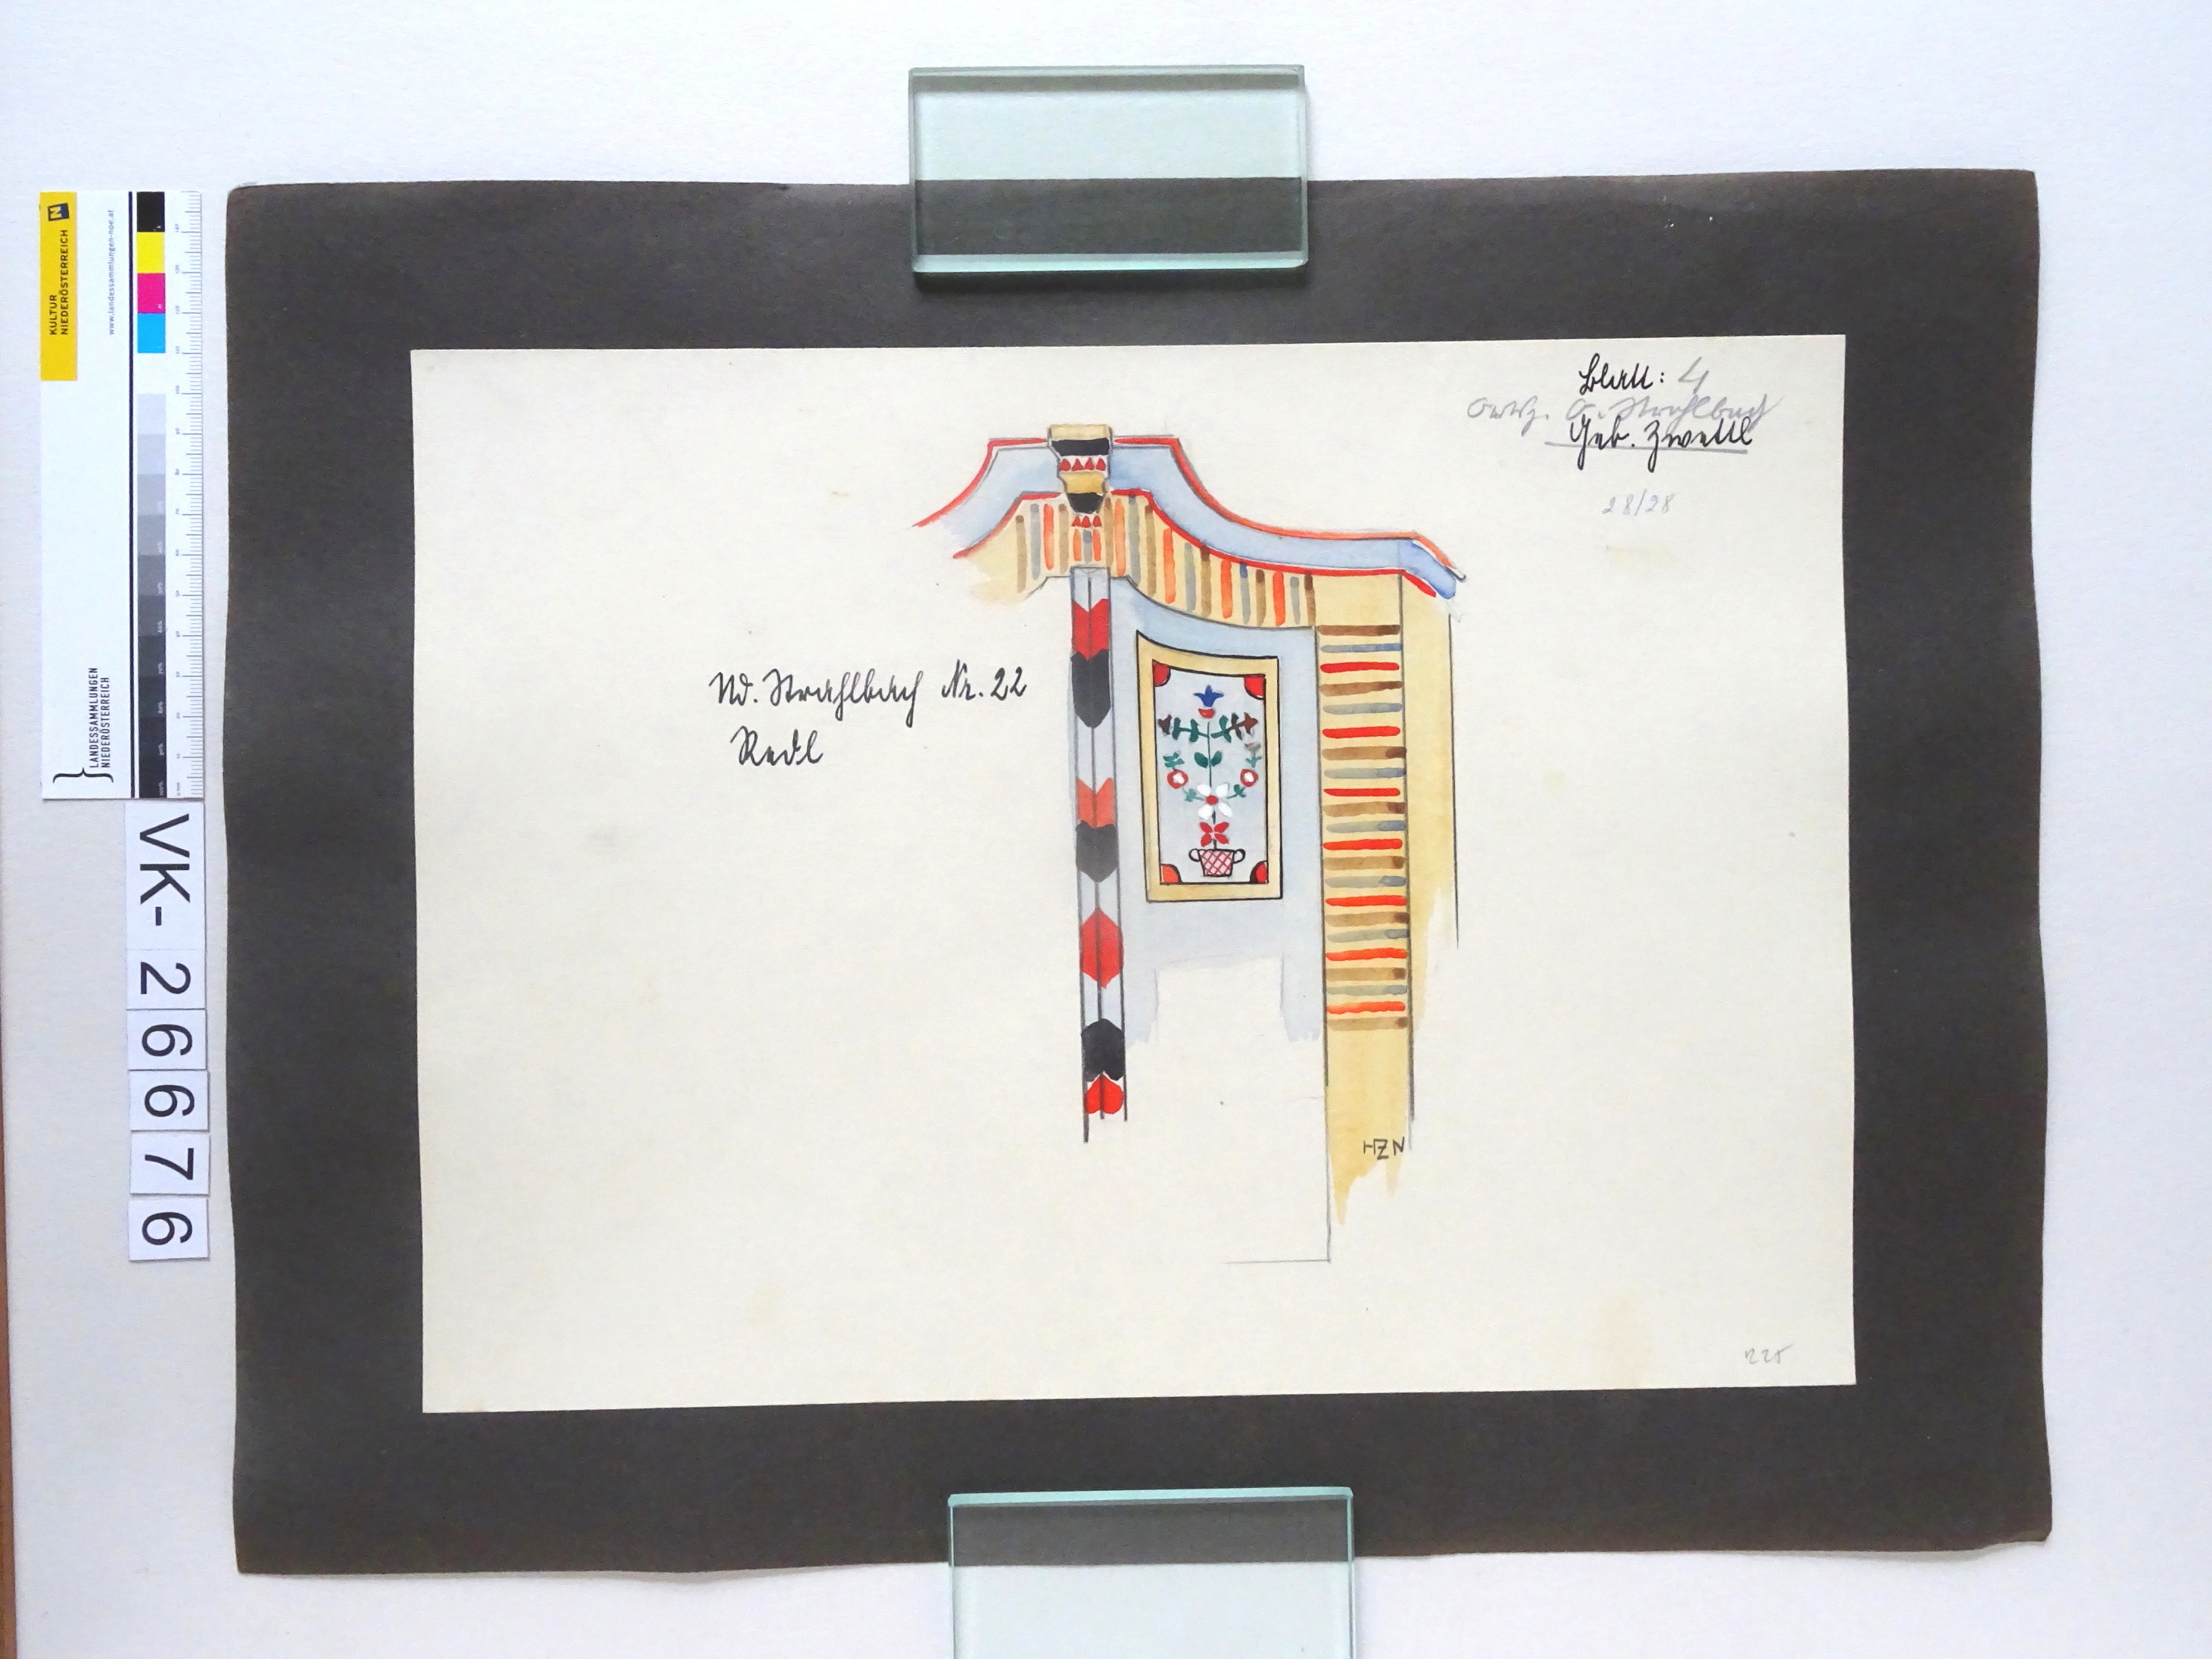 Blatt: 4
Ortsg. O. Strahlbach
Geb. Zwettl
28/28
Nd. Strahlbach Nr. 22
Redl
HZN
225
KULTUR
NIEDERÖSTERREICH
www.landessammlungen-noe.at
LANDESSAMMLUNGEN
NIEDERÖSTERREICH
VK-26676